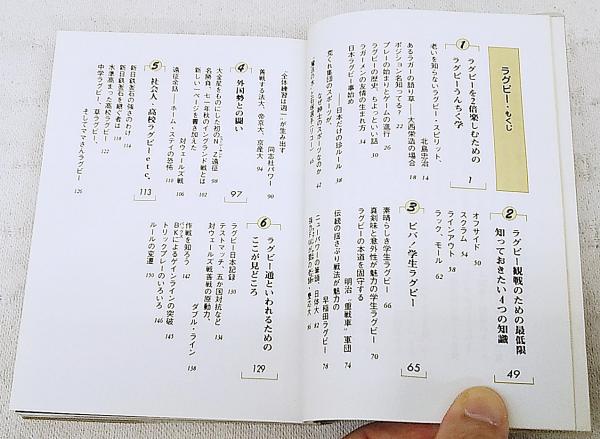 ラグビー・もくじ
1 ラグビーを2倍楽しむための
ラグビーうんちく学 1
老いを知らないラグビー・スピリット、
北島忠治 14
あるラガーの語り草―大西栄造の場合 18
ポジション名知ってる? 22
プレーの始まりとゲームの進行 26
ラグビーの歴史、ちょっといい話 30
ラガーメンの友情の生まれ方 34
日本ラグビー事始め
―日本だけの珍ルール 38
荒くれ集団のスポーツが、
なぜ紳士のスポーツなのか 42
2 ラグビー観戦のための最低限
知っておきたい4つの知識 49
オフサイド 50
スクラム 54
ラインアウト 58
ラック、モール 62
3 ビバ!学生ラグビー 65
素晴らしき学生ラグビー 66
真剣味と意外性が魅力の学生ラグビー 70
ラグビーの本道を固守する
明治〝重戦車〟軍団 74
伝統の揺さぶり戦法が魅力の
早稲田ラグビー 78
ニューパワーの筆頭、日体大 82
「全体練習は週一」が生み出す
同志社パワー 90
善戦する法大、帝京大、京産大 94
4 外国勢との闘い 97
大金星をものにした初のN・Z遠征 98
名勝負、七一年秋のイングランド戦とは 102
新しい一ページを書き加えた
対ウェールズ戦 106
遠征余話―ホーム・ステイの恐怖 110
5 社会人・高校ラグビーetc. 113
新日鉄釜石の強さのわけ 114
新日鉄釜石を継ぐ者は 118
水準高まった高校ラグビー 122
中学ラグビー、草ラグビー、
そしてママさんラグビー 126
6 ラグビー通といわれるための
ここが見どころ 129
ラグビー日本記録 130
テストマッチ、五か国対抗など 134
対ウェールズ戦善戦の原動力、
ダブル・ライン 138
作戦を知ろう 142
BKによるゲインラインの突破 143
トリックプレーのいろいろ 146
ルールの変遷 150